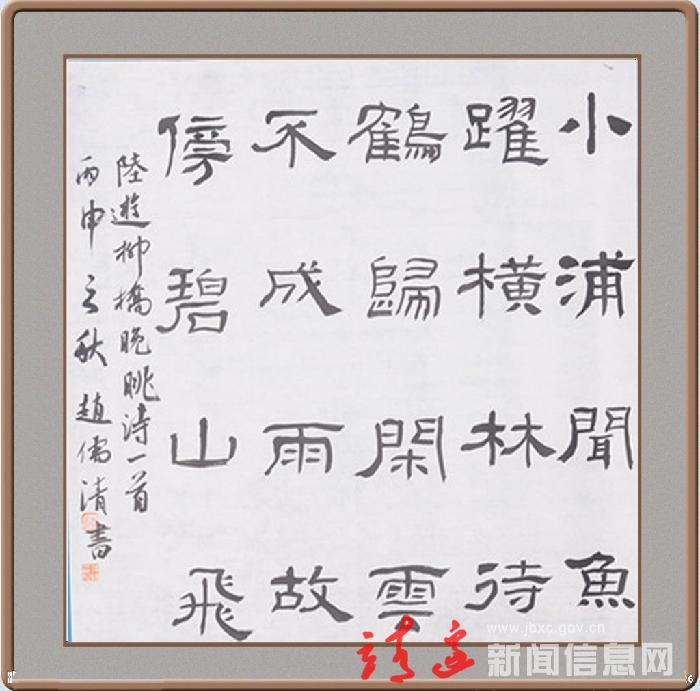 小浦聞魚
躍橫林待
鶴歸閑雲
不成雨故
傍碧山飛
陸遊柳橋晚眺詩一首
丙申之秋 趙儒清書
www.jbxc.gov.cn
靖边新闻信息网